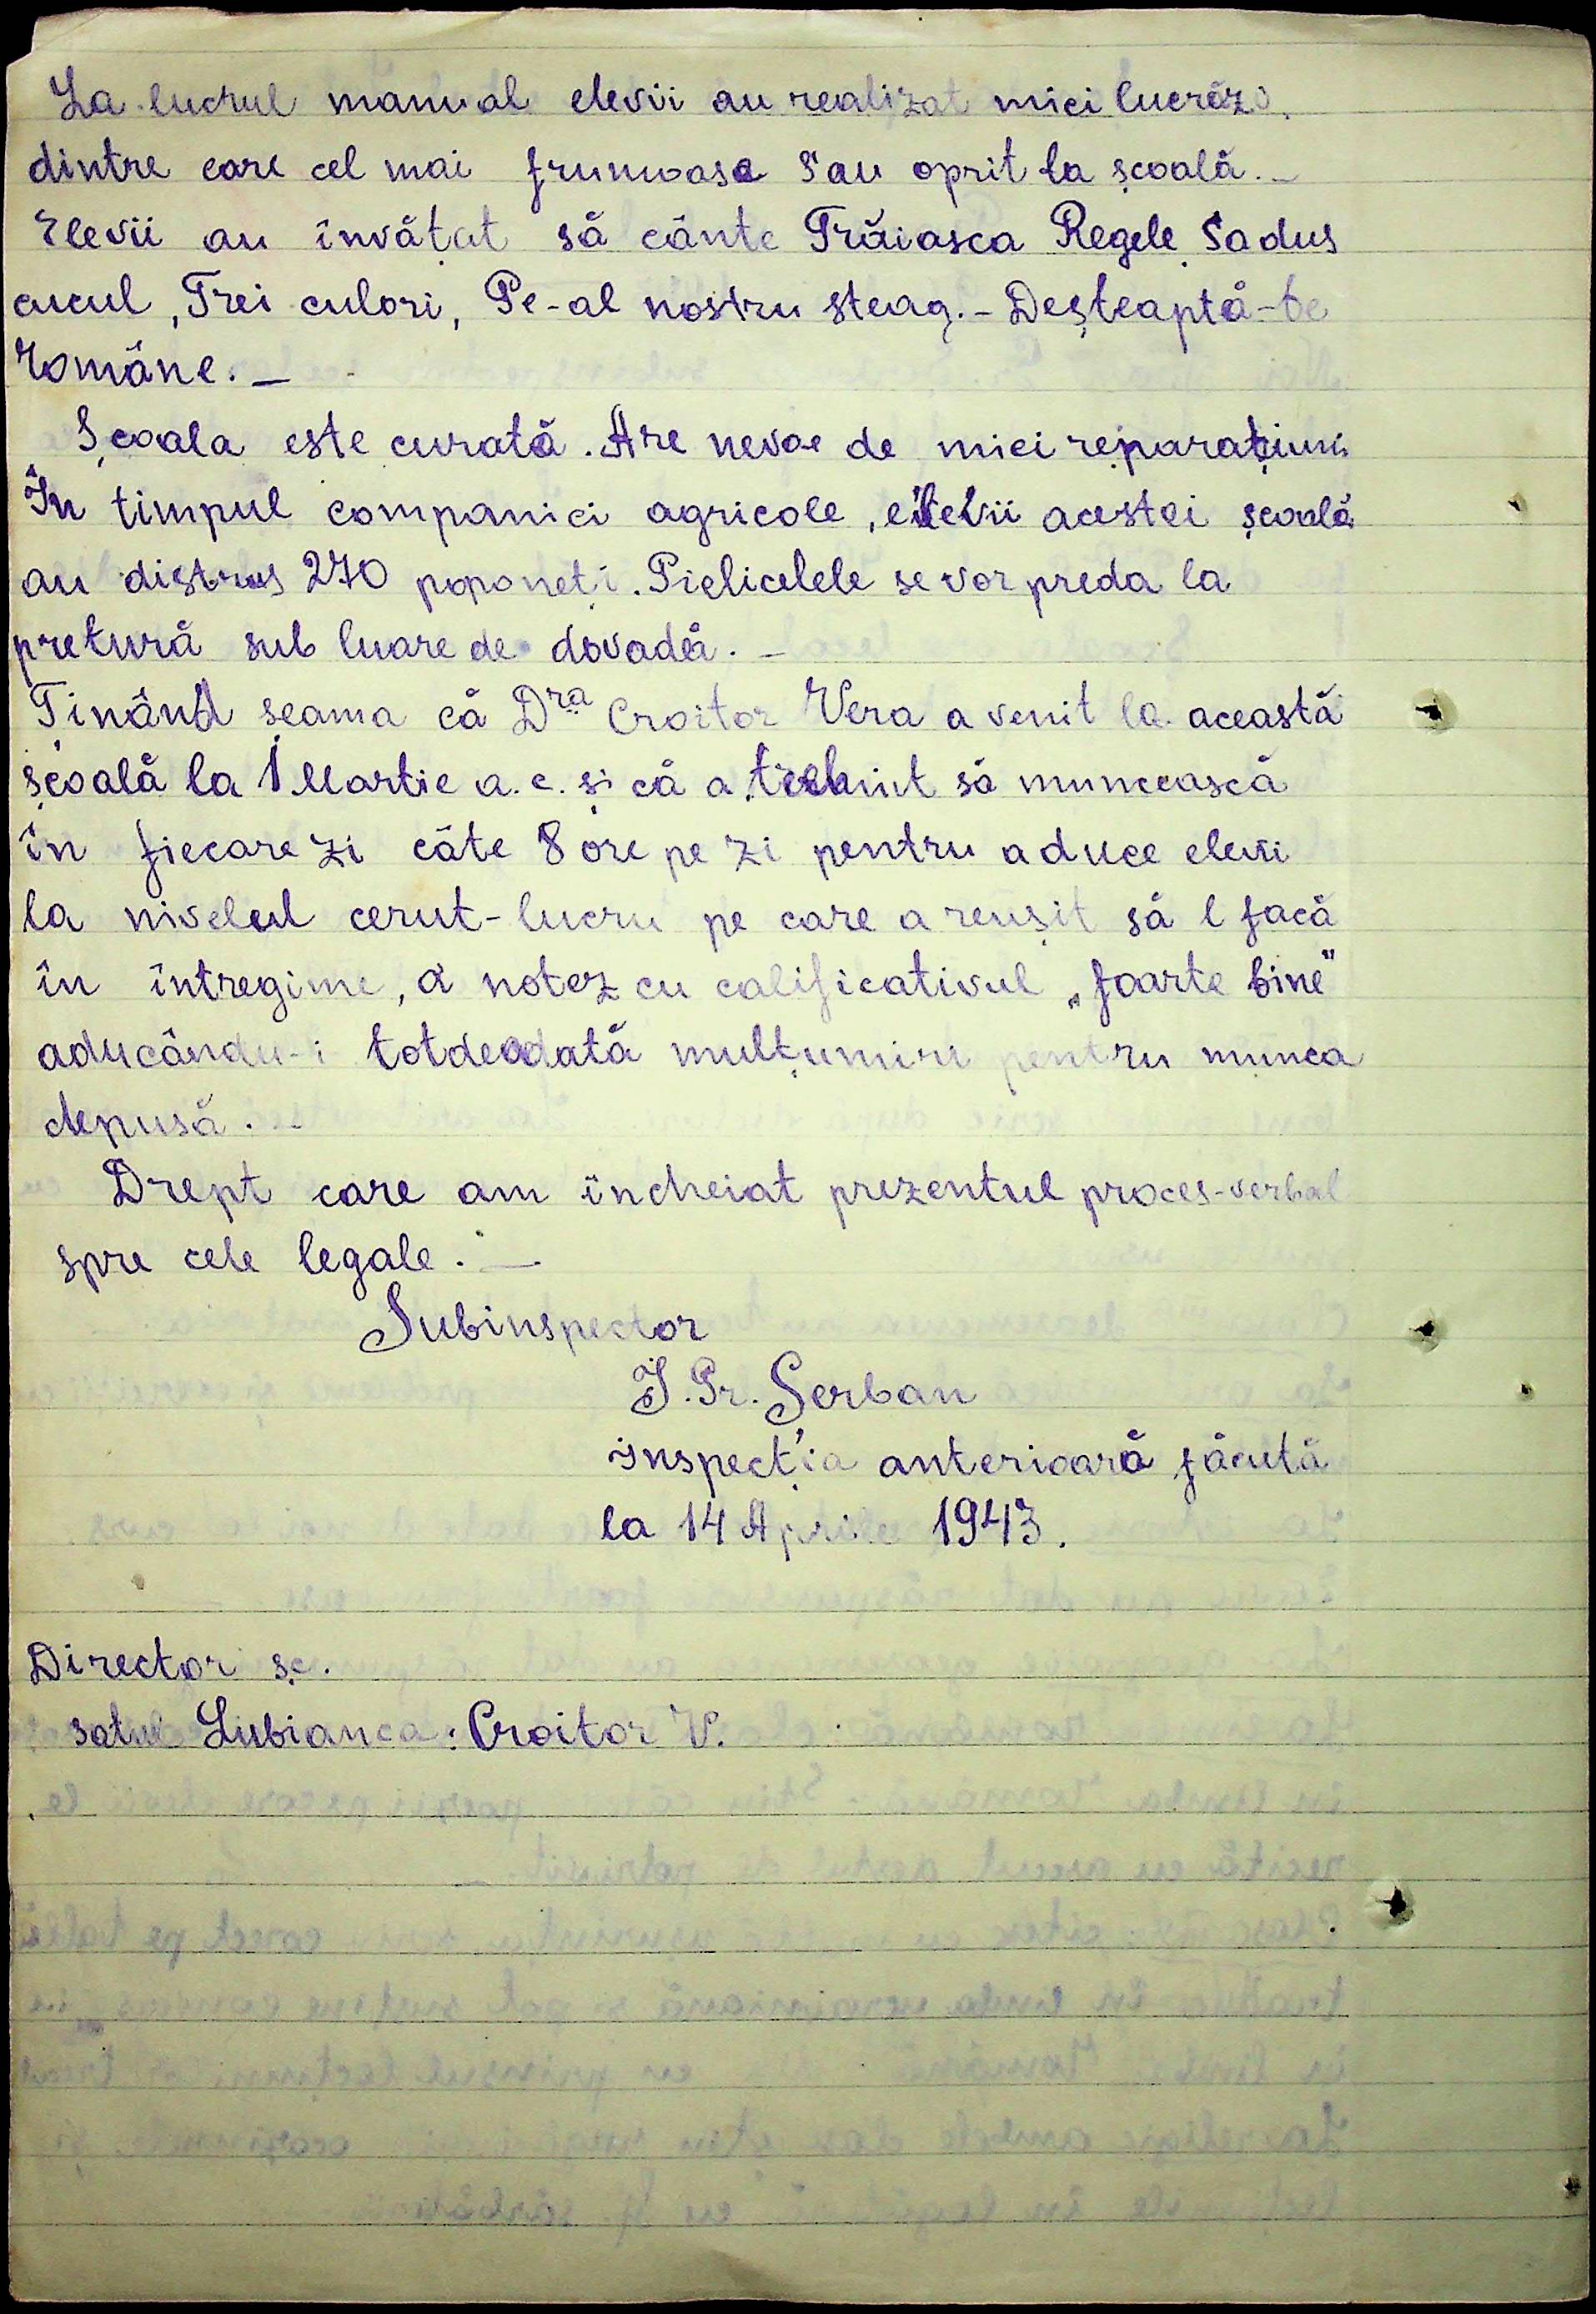 La lucrul manual elevii au realizat mici lucrări,
dintre care cel mai frumoase s'au oprit la școală. –
Elevii au învățat să cânte Trăiasca Regele, S'a dus
cucul, Trei culori, Pe-al nostru steag. – Deșteaptă-te
Române. –
Școala este curată. Are nevoe de mici reparațiuni.
În timpul companiei agricole, elevii acestei școală
au distrus 270 poponeți. Pielicelele se vor preda la
pretură sub luare de dovadă. –
Ținând seama că Dra Croitor Vera a venit la această
școală la 1 Martie a. c. și că a trebuit să muncească
în fiecare zi câte 8 ore pe zi pentru a duce elevi
la nivelul cerut – lucru pe care a reușit să l facă
în întregime, o notez cu calificativul „foarte bine"
aducându-i totdeodată mulțumiri pentru munca
depusă. –
Drept care am încheiat prezentul proces-verbal
spre cele legale. –
Subinspector
I. Pr. Șerban
Inspecția anterioară făcută
la 14 Aprilie 1943.
Director șc.
satul Lubianca: Croitor V.